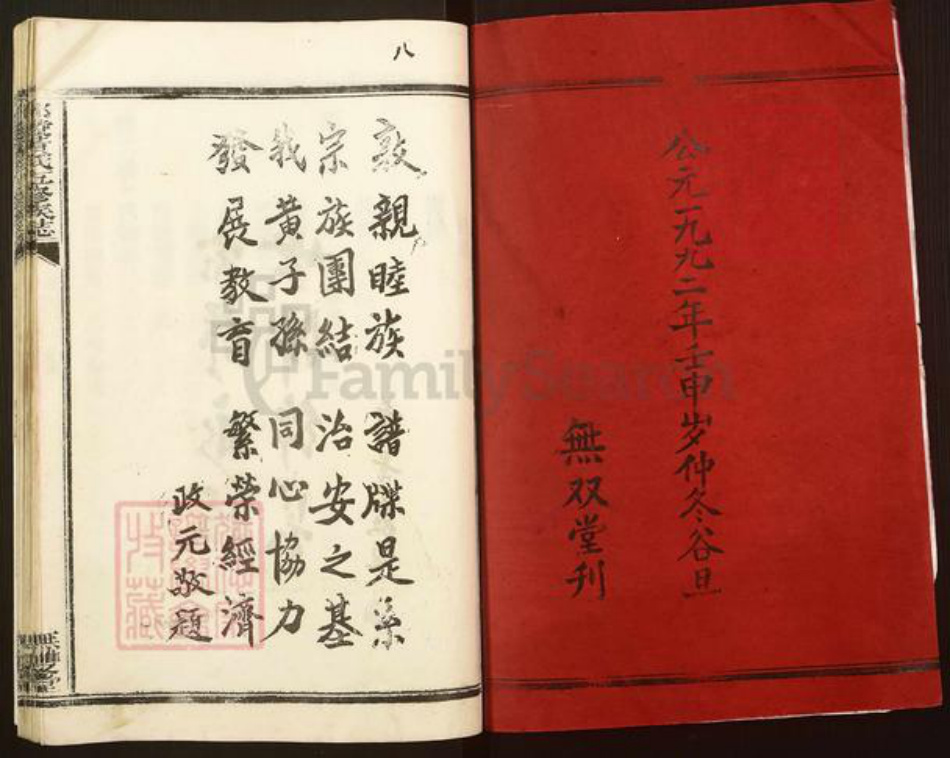 公元一九九二年壬申岁仲冬谷旦
無双堂刊
八
敦親睦族 譜牒是系
宗族團結 治安之基
我黄子孫 同心協力
發展教育 繁荣經濟
政元敬題
氏五修族誌
無雙堂
FamilySearch